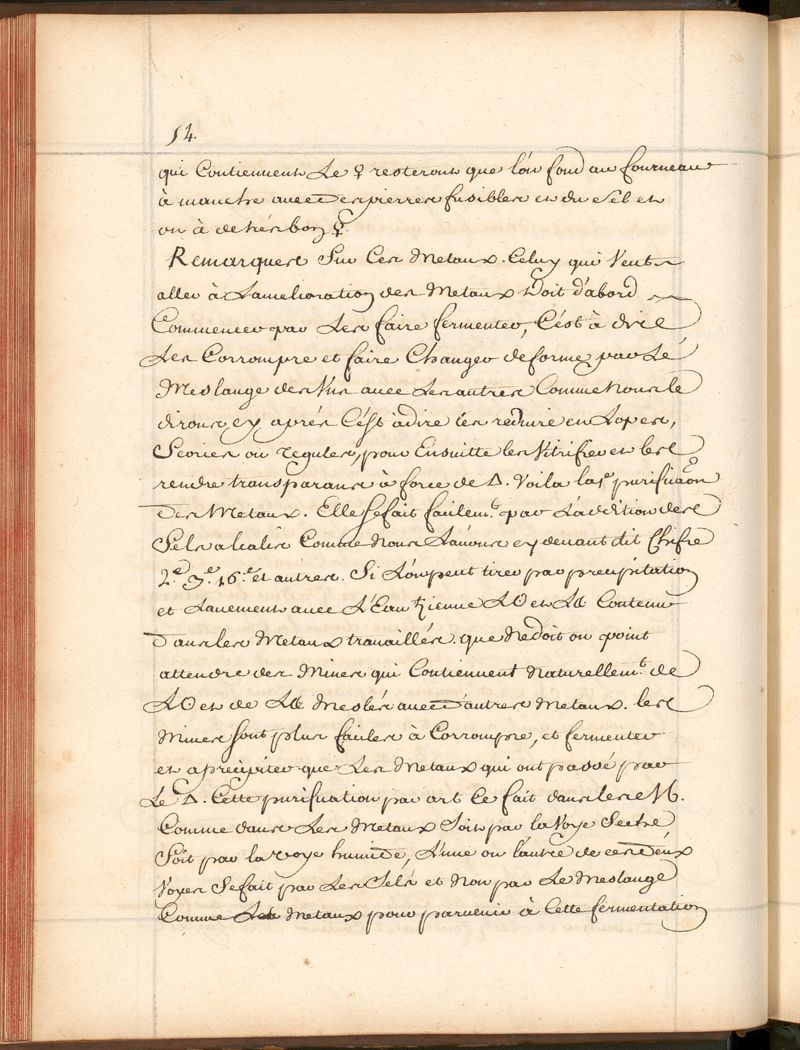 54.
qui Contiennent Le ♀ resteront que l'on fond au fourneau
à manche avec des pierres fusibles et du sel et
on à de trés bon ♀.
Remarques Sur Ces Metaux. Celuy qui Veut
aller à L'amelioration des Metaux Doit d'abord
Commencer par Les faire fermenter, C'est à dire
Les Corrompre et faire Changer de forme par Le
Meslange des Uns avec Les autres Comme Nous le
dirons cy aprés C'est àdire les reduire en Lopes,
Scories ou regules, pour Ensuitte les Vitrifier et les
rendre transparans à force de △. Voila la 1.e purificaõn
Des Metaux. Elle se fait facilem.t par L'addition des
Sels alcalis Comme Nous L'avons cy devant dit Chifre
2.e 3.e 16.e et autres. Si L'on peut tirer par precipitation
et Lavement avec L'Eau ♄ienne L☉ et L☾ Contenu
Dans les Metaux travaillés. que Ne doit on point
attendre des Mines qui Contiennent Naturellem.t de
L☉ et de L☾ Meslés avec D'autres Metaux. les
Mines sont plus faciles à Corrompre, et fermenter
et a precipiter que Les Metaux qui ont passé par
Le △. Cette purification par art Ce fait dans les M.
Comme dans Les Metaux Soit par la Voye Seche
Soit par la voye humide, L'une ou l'autre de ces Deux
Voyes Se fait par Les Sels et Non par Le Meslange
Comme Les Metaux pour parvenir à Cette fermentation